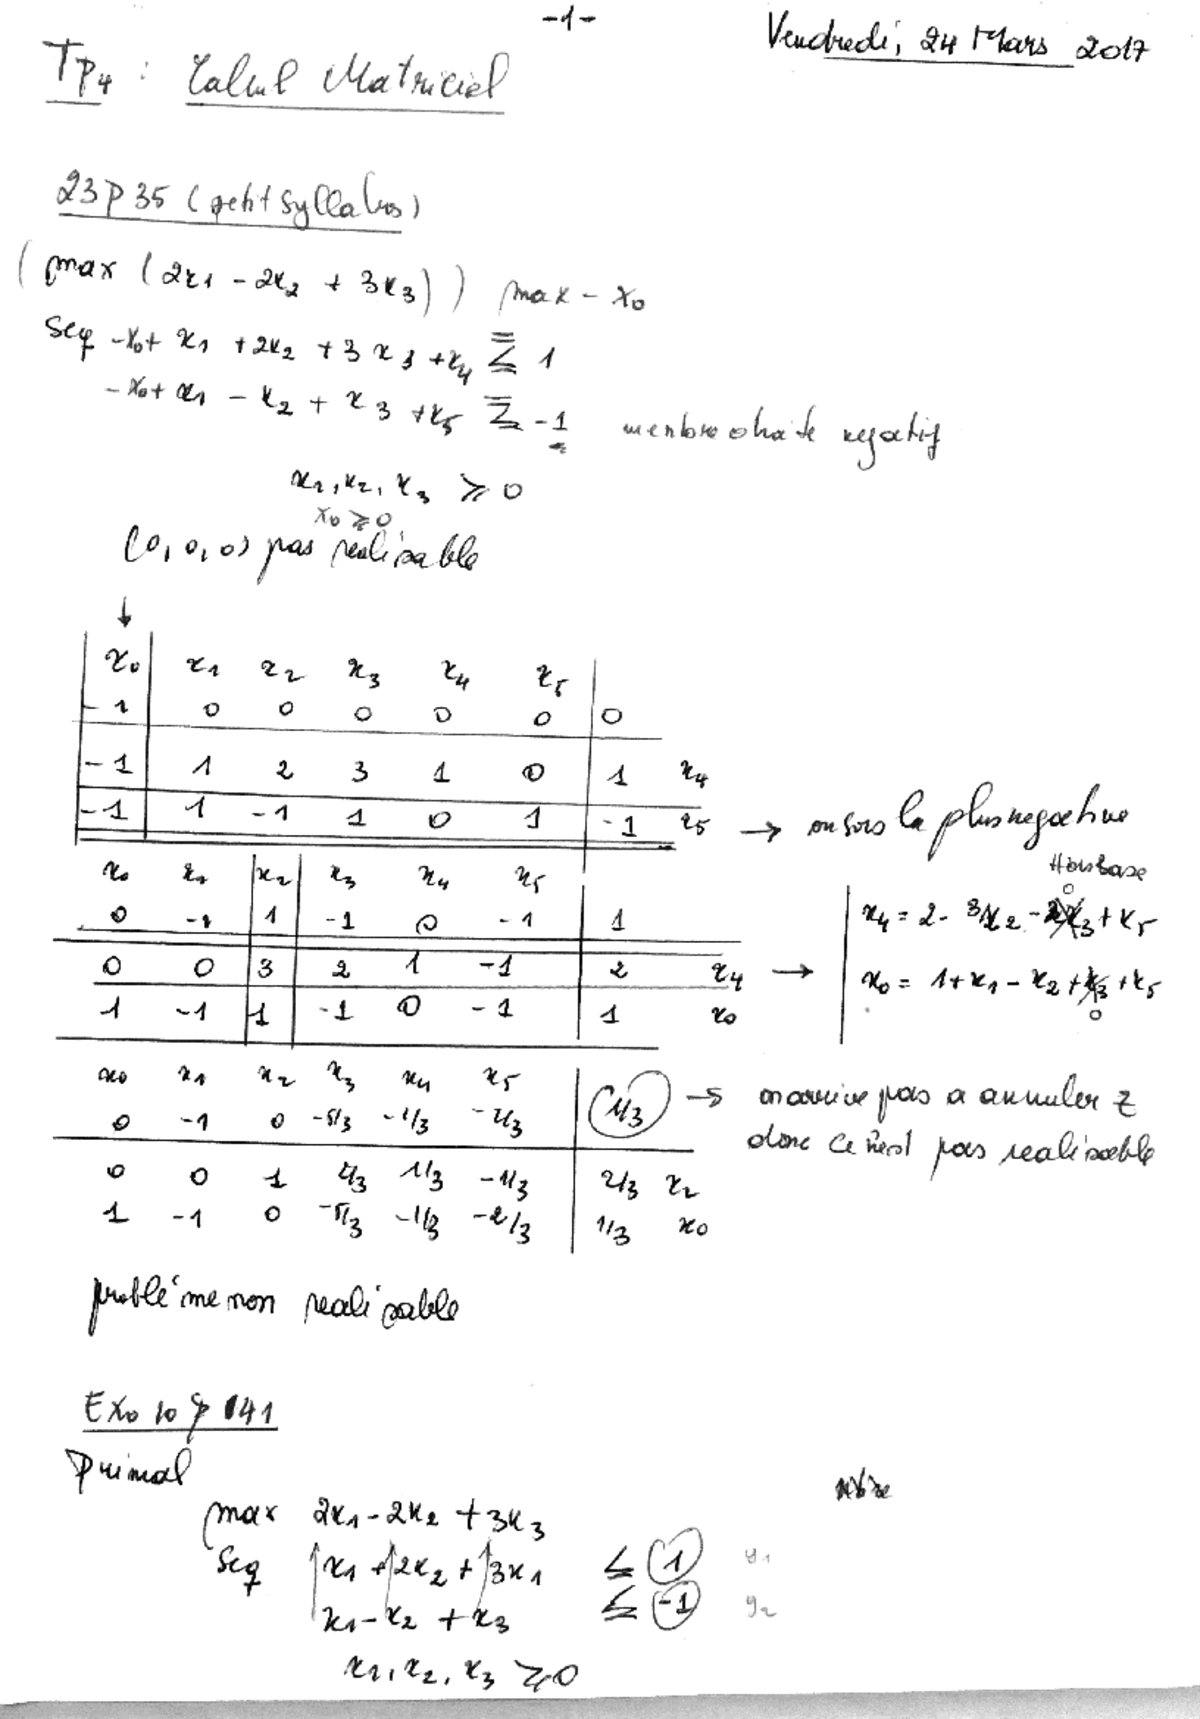 -1-
Vendredi, 24 Mars 2017
TP4 : Calcul Matriciel
23 p 35 (petit syllabus)
(max (2x1 - 2x2 + 3x3)) max - x0
Seq -x0 + x1 + 2x2 + 3x3 + x4 ≦ 1
-x0 + x1 - x2 + x3 + x5 ≦ -1 membre droite negatif
x1, x2, x3 ≥ 0
x0 ≥ 0
(0, 0, 0) pas realisable
↓
x0 x1 x2 x3 x4 x5
-1 0 0 0 0 0 0
-1 1 2 3 1 0 1 x4
-1 1 -1 1 0 1 -1 x5 → on sors la plus negative
x0 x1 x2 x3 x4 x5
0 -1 1 -1 0 -1 1
0 0 3 2 1 -1 2 x4 →
1 -1 1 -1 0 -1 1 x0
Hors base
0
x4 = 2 - 3x2 - 2x3 + x5
x0 = 1 + x1 - x2 + x3 + x5
0
x0 x1 x2 x3 x4 x5
0 -1 0 -5/3 -1/3 -2/3 1/3 → on arrive pas a annuler z
donc ce n'est pas realisable
0 0 1 2/3 1/3 -1/3 2/3 x2
1 -1 0 -5/3 -1/3 -2/3 1/3 x0
problème non realisable
Exo 10 p 141
Primal
max 2x1 - 2x2 + 3x3
Seq x1 + 2x2 + 3x1 ≤ 1 y1
x1 - x2 + x3 ≤ -1 y2
x1, x2, x3 ≥ 0